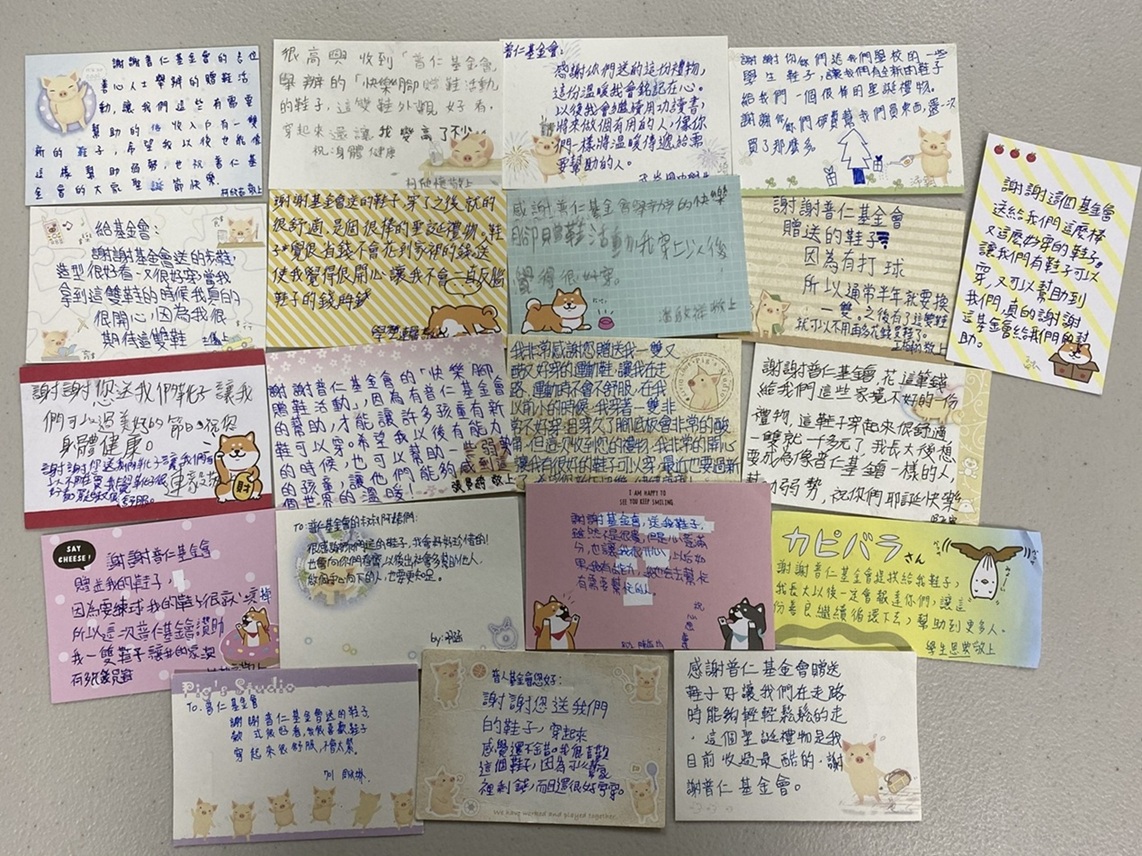 謝謝普仁基金會的各位
善心人士舉辦的贈鞋活
動,讓我們這些有需要
幫助的
收入戶有一雙
新的鞋子,希望我以後也能像
這樣幫助弱勢,也祝普仁基
金會的大家聖誕節快樂。
敬上
很高興收到「普仁基金會
舉辦的「快樂腳」贈鞋活動
的鞋子,這雙鞋外觀好看,
穿起來還讓我變高了不少,
祝身體健康
敬上
普仁基金會:
感謝你們送的這份禮物,
這份溫暖我會銘記在心。
以後我會繼續用功讀書,
將來做個有用的人,像你
們一樣將溫暖傳遞給需
要幫助的人。
謝謝你們送我們學校的一些
學生鞋子,讓我們有全新的鞋子
給我們一個很棒的聖誕禮物。
謝謝你們破費幫我們買東西,還一次
買了那麼多
謝謝這個基金會
送給我們這麼棒
又這麼好穿的鞋子。
讓我們有鞋子可以
穿,又可以幫助到
我們,真的謝謝
這基金會給我們的幫
助。
給基金會:
謝謝基金會送的球鞋,
造型很好看,又很好穿,當我
拿到這雙鞋的時候我真的
很開心,因為我很
期待這雙鞋
謝謝基金會送的鞋子,穿了之後就的
很舒適,是因很棒的聖誕禮物,鞋
子覺很省錢不會花到家裡的錢,送
使我覺得很開心讓我不會一直煩惱
鞋子的錢所錢
敬上
感謝普仁基金會舉辦的快樂
腳贈鞋活動我穿上以後
覺得很好穿。
敬上
謝謝普仁基金會
贈送的鞋子
因為有打球
所以通常半年就要換
一雙,之後有了這雙鞋
就可以不用再多花錢買鞋了。
敬上
謝謝您送我們鞋子讓我
們可以過美好的節日,祝您
身體健康。
謝謝您送我們鞋子讓我們可
財
謝謝普仁基金會的「快樂腳
贈鞋活動」,因為有普仁基金會
,才能讓許多孩童有新
鞋可以穿。希望我以後有能力
的時候,也可幫助一些弱勢
的孩童,讓他們能夠感到這
個世界的溫暖
敬上
我非常感謝您贈送我一雙又
酷又好穿的運動鞋,讓我在走
路、運動時不會不舒服,在我
以前小的時候,我穿著一雙非
常不好穿,且穿久了腳底板會非常的酸
痛,但這次收到您的禮物,我非常的開心
讓我有很好的鞋子可以穿,最近也要過新
謝謝普仁基金會,花這筆錢
給我們這些家境不好的一份
禮物,這鞋子穿起來很舒適
一雙就一千多元了,我長大後想
要成為像普仁基金會一樣的人,
幫助弱勢,祝你們耶誕快樂
SAY
CHEESE!
謝謝普仁基金會
贈送我的鞋子,
因為要練球,我的鞋子很就
所以這次普仁基金會讚助
我一雙鞋子讓我的家裡
有多錢買
TO:普仁基金會的叔叔阿姨們:
很感謝你們送的鞋子,我會好好珍惜的!
也會向你們看齊,以後出社會多幫助他人,
做個手心向下的人,也要更知足。
by:
I AM HAPPY TO
SEE YOU KEEP SMILING.
謝謝基金會,送我鞋子,
雖然不是很貴,但是心意滿
分,也讓我很開心,以後如
果我有能力,我也會去幫忙
有需要幫忙的人。
祝
カピバラさん
謝謝普仁基金會提拱給我鞋子,
我長大以後一定會報達你們,讓這
份善良繼續循環下去,幫助到更多人。
學生恩典敬上
Pig's Studio
To.普仁基金會
謝謝普仁基金會送的鞋子,
款式很好看,我很喜歡鞋子
穿起來很舒服,不會太緊
普人基金會您好:
謝謝您送我們
的鞋子,穿起來
感覺還不錯。我很喜歡
這個鞋子,因為可以幫家
裡剩錢,而且還很好穿。
We have worked and played together.
感謝普仁基金會贈送
鞋子好讓我們在走路
時能夠輕輕鬆鬆的走
,這個聖誕禮物是我
目前收過最酷的,謝
謝普仁基金會。